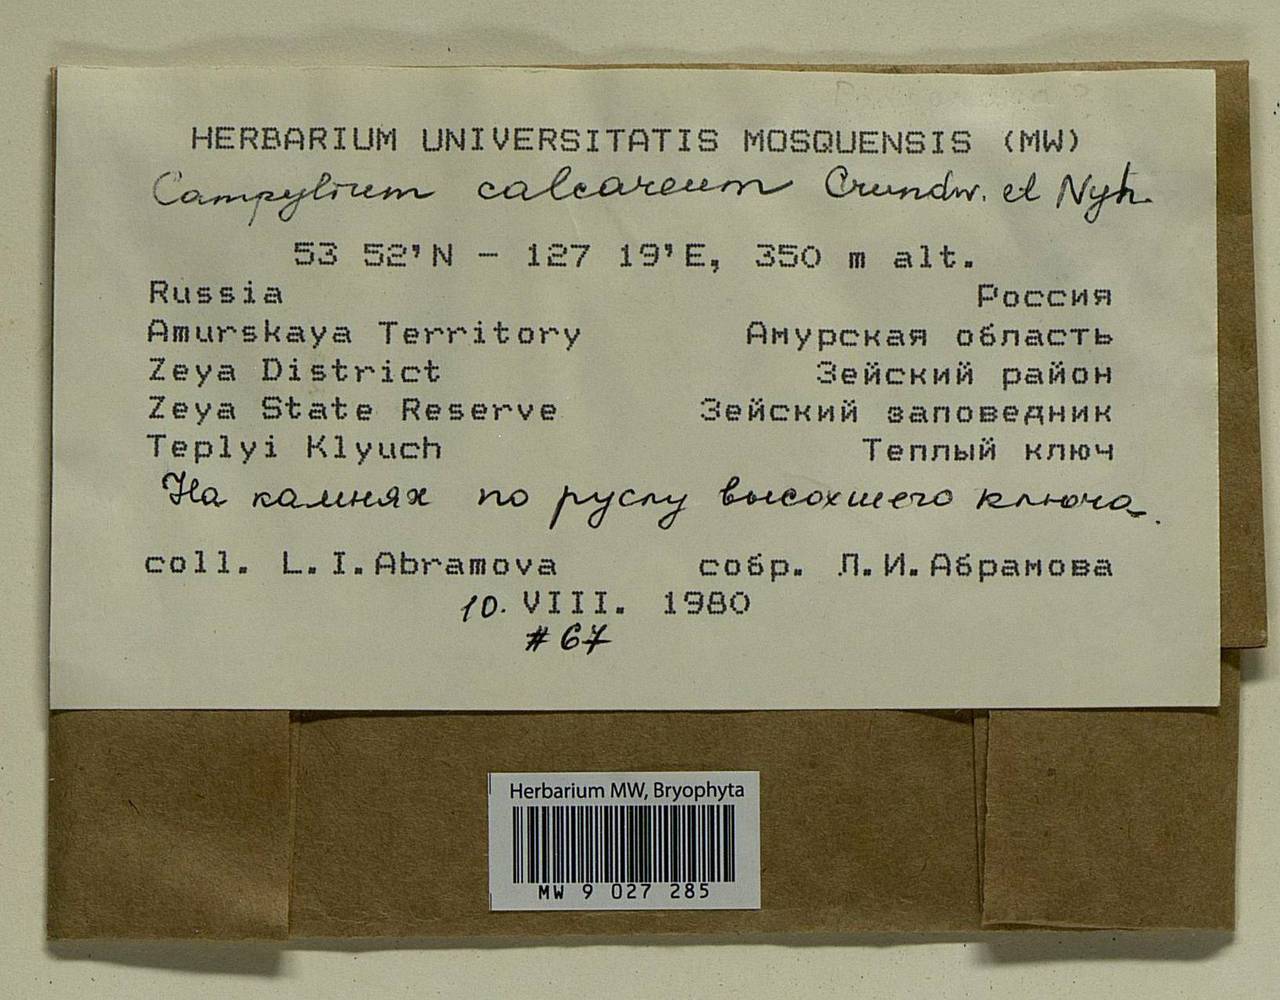 HERBARIUM UNIVERSITATIS MOSQUENSIS (MW)
Campylium calcareum Crundw. et Nyh.
53 52'N - 127 19'E, 350 m alt.
Russia Россия
Amurskaya Territory Амурская область
Zeya District Зейский район
Zeya State Reserve Зейский заповедник
Teplyi Klyuch Теплый ключ
На камнях по руслу высохшего ключа.
coll. L.I.Abramova собр. Л.И.Абрамова
10. VIII. 1980
#67
Herbarium MW, Bryophyta
MW 9 027 285